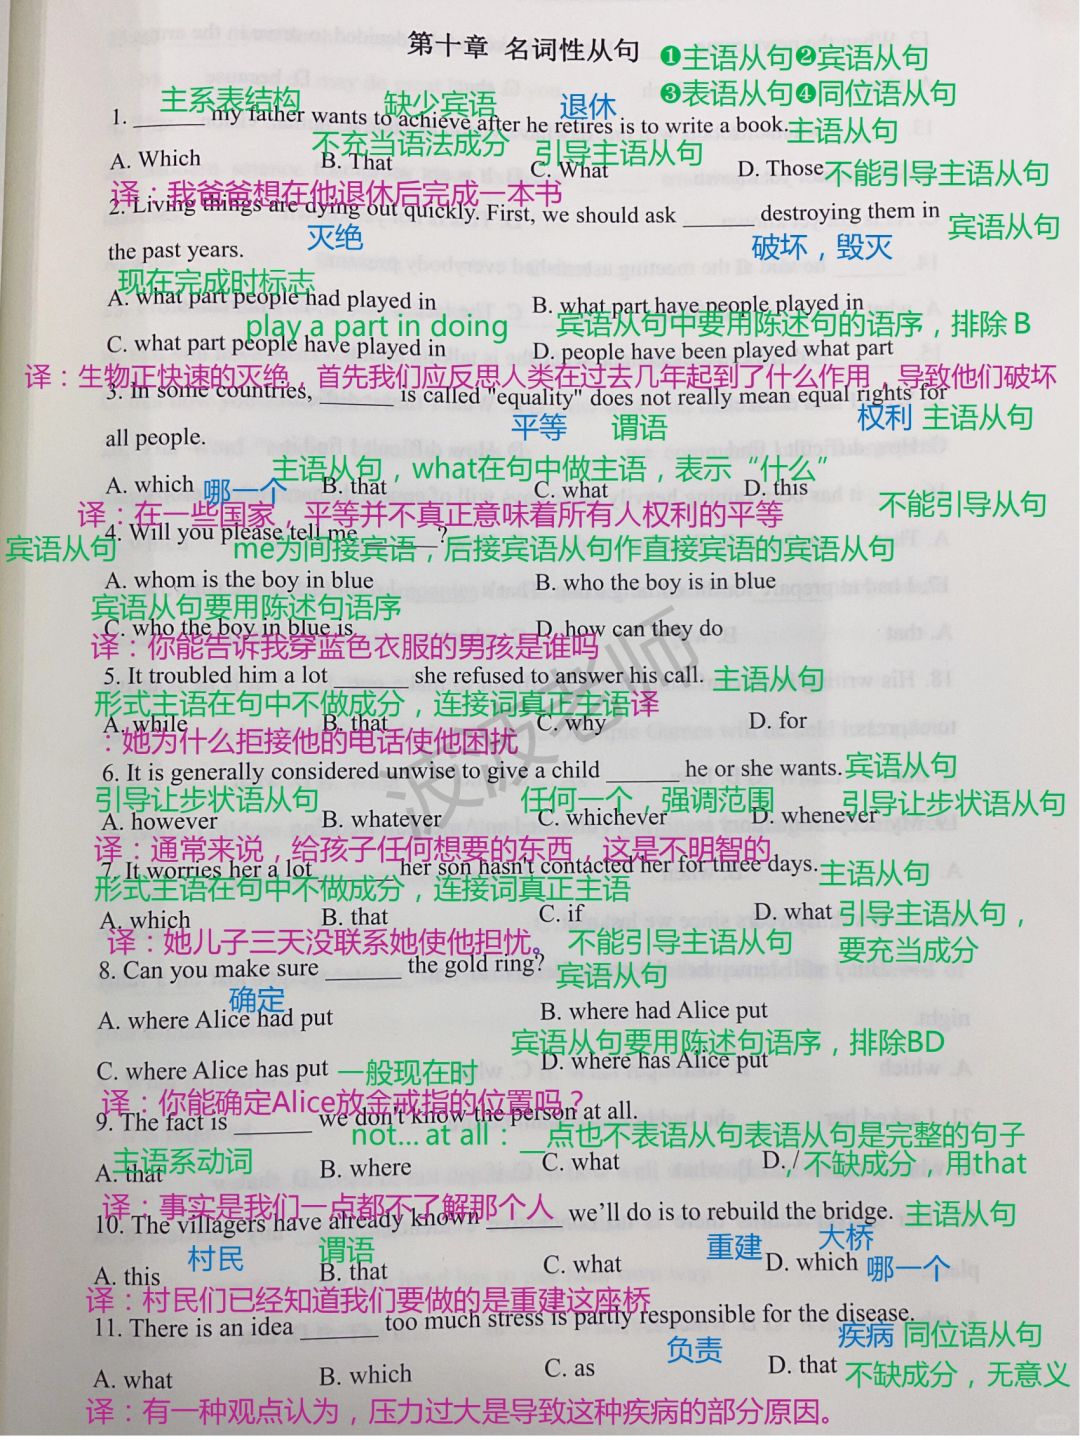 第十章 名词性从句
❶主语从句❷宾语从句
❸表语从句❹同位语从句
主系表结构 缺少宾语 退休
1. ______ my father wants to achieve after he retires is to write a book. 主语从句
不充当语法成分 引导主语从句
A. Which B. That C. What D. Those 不能引导主语从句
译：我爸爸想在他退休后完成一本书
2. Living things are dying out quickly. First, we should ask ______ destroying them in 宾语从句
the past years. 灭绝 破坏，毁灭
现在完成时标志
A. what part people had played in B. what part have people played in
play a part in doing 宾语从句中要用陈述句的语序，排除 B
C. what part people have played in D. people have been played what part
译：生物正快速的灭绝，首先我们应反思人类在过去几年起到了什么作用，导致他们破坏
3. In some countries, ______ is called "equality" does not really mean equal rights for
all people. 平等 谓语 权利 主语从句
主语从句，what在句中做主语，表示“什么”
A. which 哪一个 B. that C. what D. this 不能引导从句
译：在一些国家，平等并不真正意味着所有人权利的平等
4. Will you please tell me ______?
宾语从句 me为间接宾语，后接宾语从句作直接宾语的宾语从句
A. whom is the boy in blue B. who the boy is in blue
宾语从句要用陈述句语序
C. who the boy in blue is D. how can they do
译：你能告诉我穿蓝色衣服的男孩是谁吗
5. It troubled him a lot ______ she refused to answer his call. 主语从句
形式主语在句中不做成分，连接词真正主语译
A. while B. that C. why D. for
：她为什么拒接他的电话使他困扰
6. It is generally considered unwise to give a child ______ he or she wants. 宾语从句
引导让步状语从句 任何一个，强调范围 引导让步状语从句
A. however B. whatever C. whichever D. whenever
译：通常来说，给孩子任何想要的东西，这是不明智的
7. It worries her a lot ______ her son hasn't contacted her for three days. 主语从句
形式主语在句中不做成分，连接词真正主语
A. which B. that C. if D. what 引导主语从句，
译：她儿子三天没联系她使他担忧。 不能引导主语从句 要充当成分
8. Can you make sure ______ the gold ring? 宾语从句
确定
A. where Alice had put B. where had Alice put
宾语从句要用陈述句语序，排除BD
C. where Alice has put 一般现在时 D. where has Alice put
译：你能确定Alice放金戒指的位置吗？
9. The fact is ______ we don't know the person at all.
not... at all：一点也不表语从句表语从句是完整的句子
主语系动词
A. that B. where C. what D. / 不缺成分，用that
译：事实是我们一点都不了解那个人
10. The villagers have already known ______ we’ll do is to rebuild the bridge. 主语从句
村民 谓语 重建 大桥
A. this B. that C. what D. which 哪一个
译：村民们已经知道我们要做的是重建这座桥
11. There is an idea ______ too much stress is partly responsible for the disease.
负责 疾病 同位语从句
A. what B. which C. as D. that 不缺成分，无意义
译：有一种观点认为，压力过大是导致这种疾病的部分原因。
波波老师